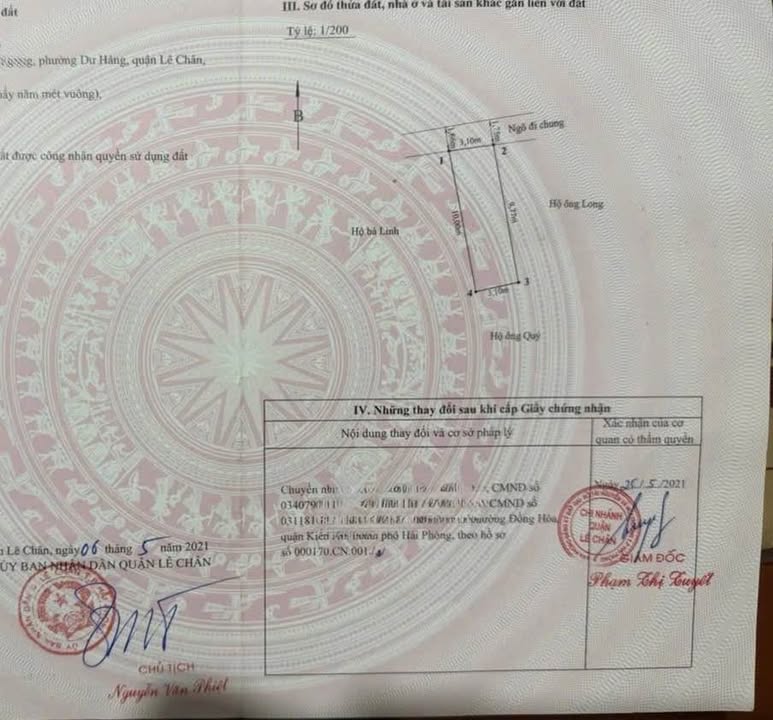 đất
III. Sơ đồ thửa đất, nhà ở và tài sản khác gắn liền với đất
Tỷ lệ: 1/200
phường Dư Hàng, quận Lê Chân,
năm mét vuông),
B
Ngõ đi chung
1,75m
3,10m
1
2
ất được công nhận quyền sử dụng đất
10,00m
9,77m
Hộ bà Linh
Hộ ông Long
4
3,10m
3
Hộ ông Quý
IV. Những thay đổi sau khi cấp Giấy chứng nhận
Nội dung thay đổi và cơ sở pháp lý
Xác nhận của cơ
quan có thẩm quyền
Chuyển CMND số
Ngày 25/5/2021
CMND số
phường Đồng Hòa,
quận Kiến thành phố Hải Phòng, theo hồ sơ
số 000170.CN.001
CHI NHÁNH
QUẬN
LÊ CHÂN
GIÁM ĐỐC
Phạm Thị Tuyết
Lê Chân, ngày 06 tháng 5 năm 2021
ỦY BAN NHÂN DÂN QUẬN LÊ CHÂN
CHỦ TỊCH
Nguyễn Văn Phiệt